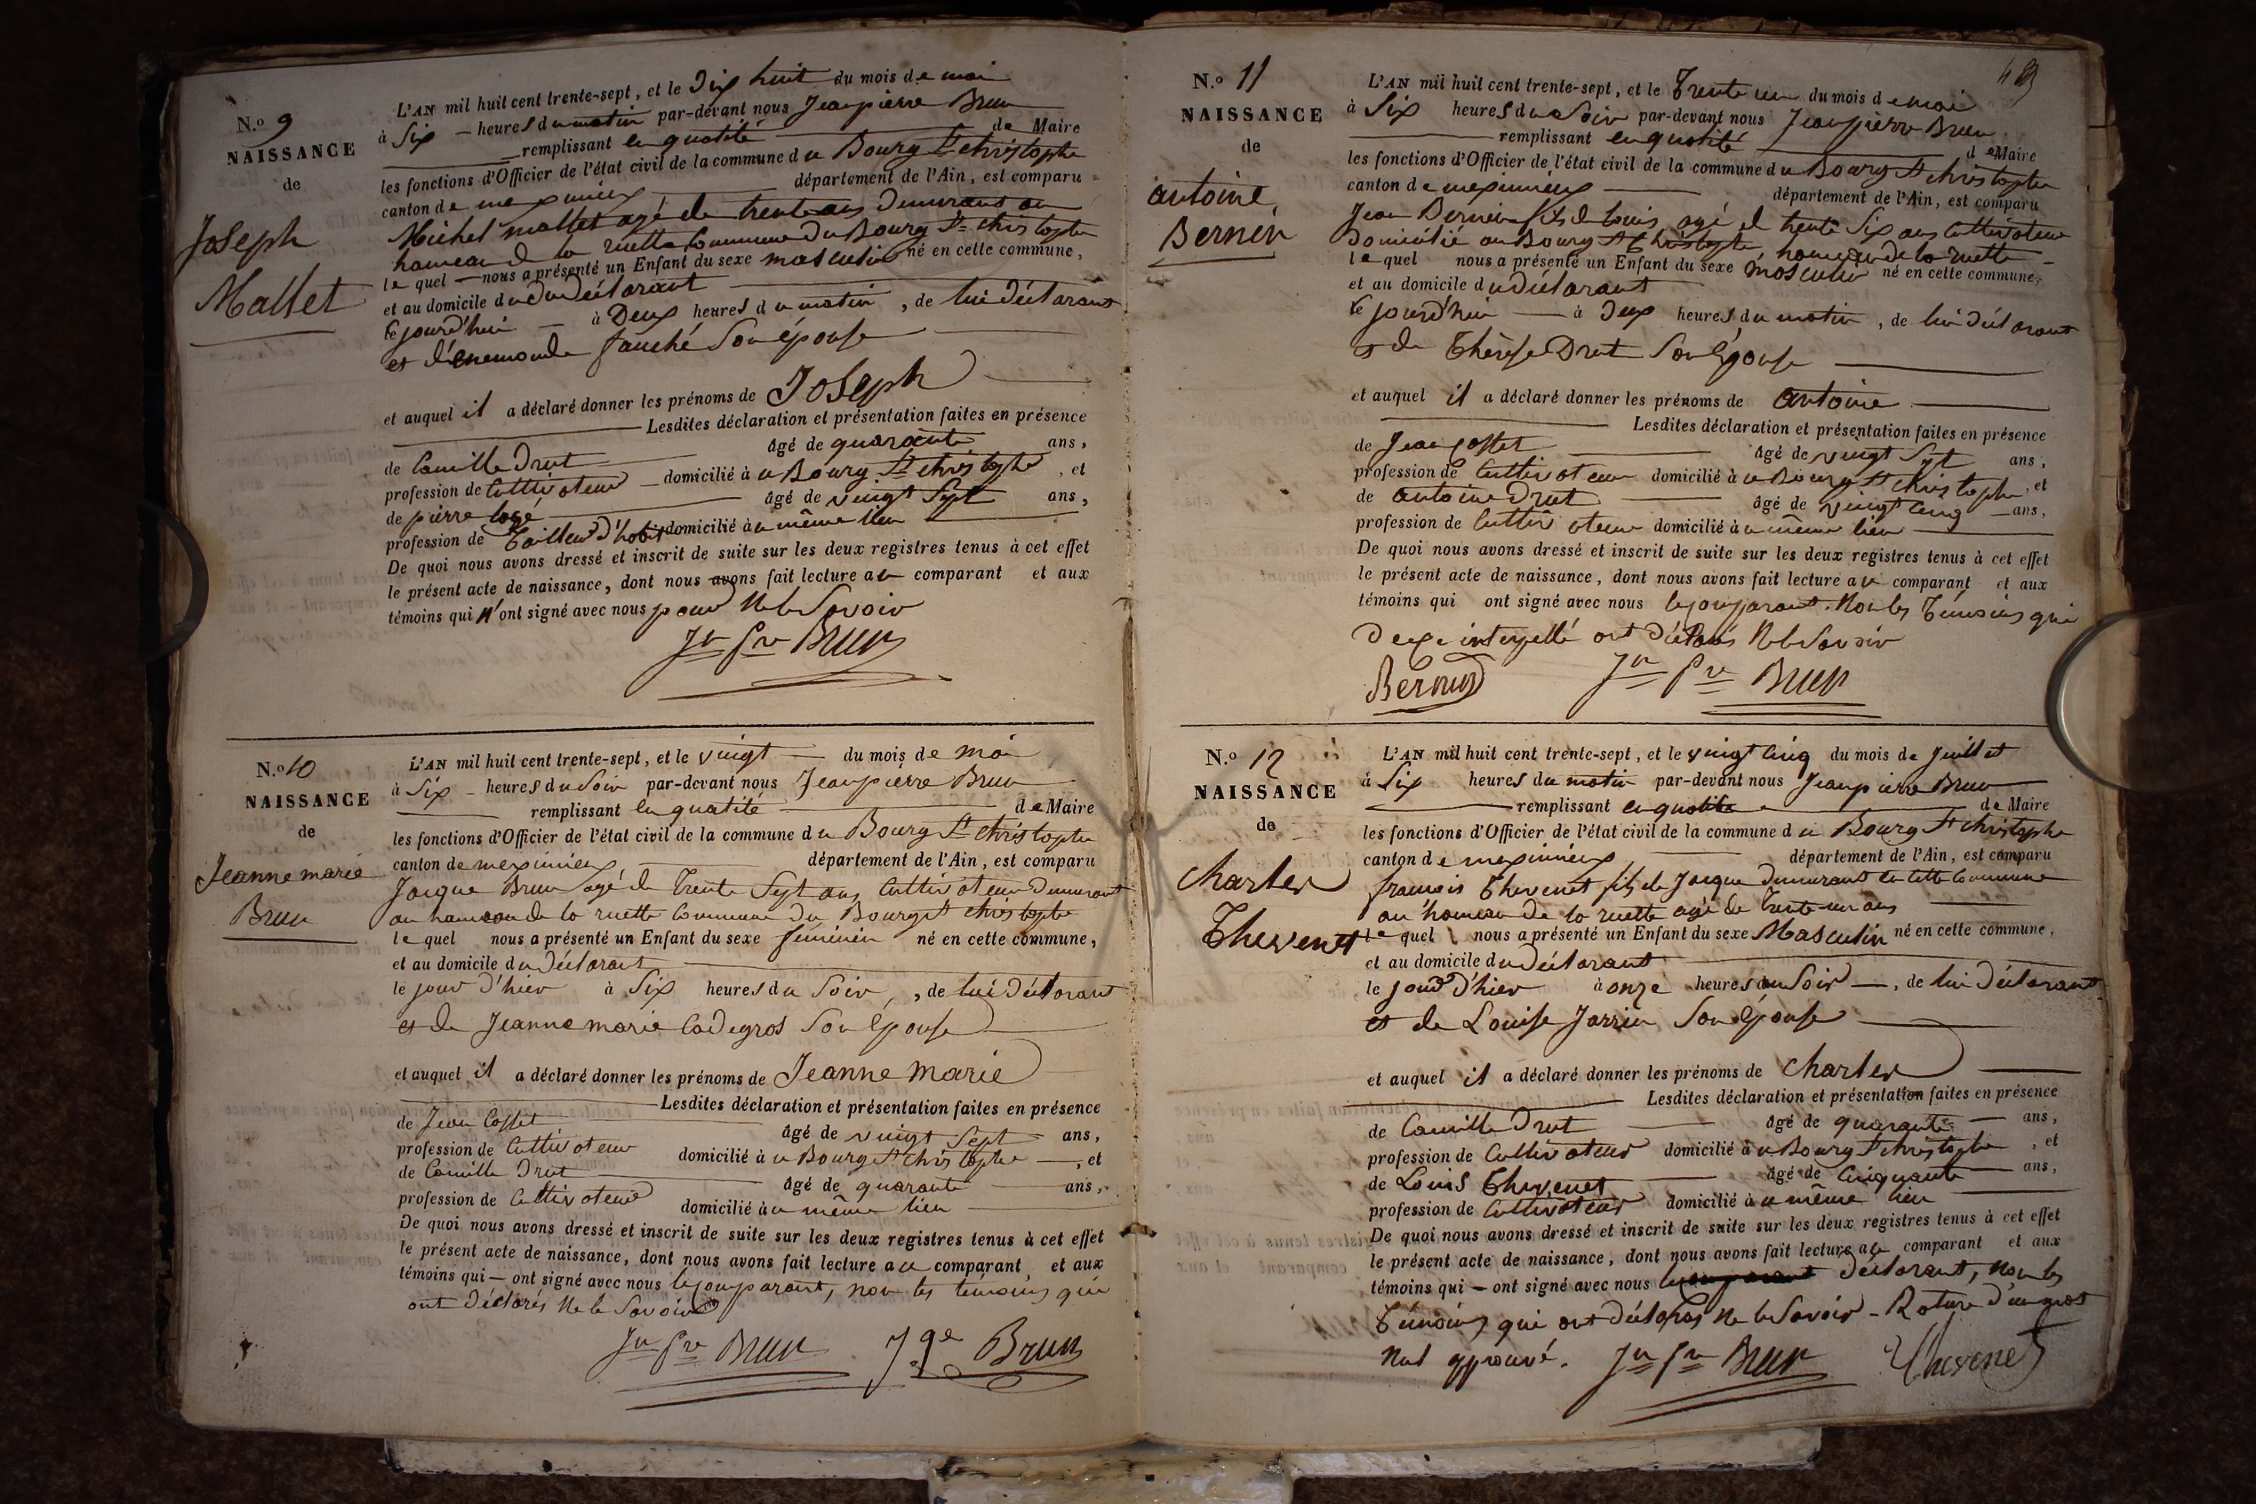 N.º 9
NAISSANCE
de
Joseph
Mallet
L'AN mil huit cent trente-sept, et le Dix huit du mois de mai
à Six heures du matin par-devant nous Jeanpierre Brun
remplissant en qualité de Maire
les fonctions d'Officier de l'état civil de la commune du Bourg St christophe
canton de meximieux département de l'Ain, est comparu
Michel mallet agé de trente ans Demurant au
hameau de la ruette Commune du Bourg St christophe
lequel nous a présenté un Enfant du sexe masculin né en cette commune,
et au domicile du dudéclarant
Ce jourd'hui à Deux heures du matin, de lui déclarant
et d'enemonde fauché Son épouse
et auquel il a déclaré donner les prénoms de Joseph
Lesdites déclaration et présentation faites en présence
de Camille Drut âgé de quarante ans,
profession de Cultivateur domicilié à u Bourg St christophe, et
de pierre âgé de vingt Sept ans,
profession de Tailleur d'habit domicilié à u même lieu
De quoi nous avons dressé et inscrit de suite sur les deux registres tenus à cet effet
le présent acte de naissance, dont nous avons fait lecture au comparant et aux
témoins qui n'ont signé avec nous pour Ne le Savoir
Jn Pre Brun
N.º 10
NAISSANCE
de
Jeanne marie
Brun
L'AN mil huit cent trente-sept, et le vingt du mois de mai
à Six heures du Soir par-devant nous Jeanpierre Brun
remplissant en qualité de Maire
les fonctions d'Officier de l'état civil de la commune du Bourg St christophe
canton de meximieux département de l'Ain, est comparu
Jacque Brun agé de Trente Sept ans Cultivateur Demurant
au hameau de la ruette Commune du Bourg St christophe
lequel nous a présenté un Enfant du sexe féminin né en cette commune,
et au domicile du Déclarant
le jour d'hier à Six heures du Soir, de lui Déclarant
et de Jeanne marie Cadegros Son Epouse
et auquel il a déclaré donner les prénoms de Jeanne marie
Lesdites déclaration et présentation faites en présence
de Jean Cottet âgé de vingt Sept ans,
profession de Cultivateur domicilié à u Bourg St christophe, et
de Camille Drut âgé de quarante ans,
profession de Cultivateur domicilié à u même lieu
De quoi nous avons dressé et inscrit de suite sur les deux registres tenus à cet effet
le présent acte de naissance, dont nous avons fait lecture au comparant, et aux
témoins qui ont signé avec nous le Comparant, non les témoins qui
ont Déclarés Ne le Savoir
Jn Pre Brun Jqe Brun
N.º 11
NAISSANCE
de
antoine
Bernin
L'AN mil huit cent trente-sept, et le Trente un du mois de mai
à Six heures du Soir par-devant nous Jeanpierre Brun
remplissant en qualité de Maire
les fonctions d'Officier de l'état civil de la commune du Bourg St christophe
canton de meximieux département de l'Ain, est comparu
Jean Bernin fils de louis agé de trente Six ans Cultivateur
Domicilié au Bourg St Christophe hameau de la ruette
lequel nous a présenté un Enfant du sexe masculin né en cette commune,
et au domicile du déclarant
Ce jourd'hui à Deux heures du matin, de lui déclarant
et de Thérèse Drut Son Epouse
et auquel il a déclaré donner les prénoms de antoine
Lesdites déclaration et présentation faites en présence
de Jean Cottet âgé de vingt Sept ans,
profession de Cultivateur domicilié à u Bourg St christophe, et
de antoine Drut âgé de vingt Cinq ans,
profession de Cultivateur domicilié à u même lieu
De quoi nous avons dressé et inscrit de suite sur les deux registres tenus à cet effet
le présent acte de naissance, dont nous avons fait lecture au comparant et aux
témoins qui ont signé avec nous le Comparant. Non les Témoins qui
De ce interpellé ont Déclarés Ne le Savoir
Bernin Jn Pre Brun
N.º 12
NAISSANCE
de
Charles
Thevenet
L'AN mil huit cent trente-sept, et le vingt Cinq du mois de Juillet
à Six heures du matin par-devant nous Jeanpierre Brun
remplissant en qualité de Maire
les fonctions d'Officier de l'état civil de la commune du Bourg St christophe
canton de meximieux département de l'Ain, est comparu
francois Thevenet fils de Jacque Demurant en cette Commune
au hameau de la ruette agé de Trente un ans
lequel nous a présenté un Enfant du sexe Masculin né en cette commune,
et au domicile du déclarant
le jour d'hier à onze heures du Soir, de lui Déclarant
et de Louise Jarrin Son Epouse
et auquel il a déclaré donner les prénoms de Charles
Lesdites déclaration et présentation faites en présence
de Camille Drut âgé de quarante ans,
profession de Cultivateur domicilié à u Bourg St christophe, et
de Louis Thevenet âgé de Cinquante ans,
profession de Cultivateur domicilié à u même lieu
De quoi nous avons dressé et inscrit de suite sur les deux registres tenus à cet effet
le présent acte de naissance, dont nous avons fait lecture au comparant et aux
témoins qui ont signé avec nous le Comparant Déclarant, non les
Témoins qui ont Déclarés Ne le Savoir - Rature d'un mot
Nul approuvé. Jn Pre Brun Thevenet